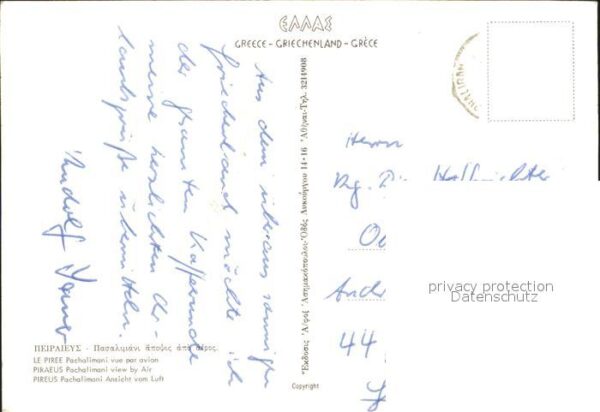 ΕΛΛΑΣ
GREECE - GRIECHENLAND - GRÈCE
Aus dem überaus sonnigen
Griechenland möchte ich
der gesamten Kafferunde
meine herzlichsten Ur-
laubsgrüße übermitteln.
Rudolf
ΠΕΙΡΑΙΕΥΣ - Πασαλιμάνι ἄποψις ἀπὸ ἀέρος.
LE PIREE Pachalimani vue par avion
PIRAEUS Pachalimani view by Air
PIREUS Pachalimani Ansicht vom Luft
Ἐκδόσεις Ἀφοί Ἀσημακόπουλοι-Ὁδὸς Λυκούργου 14-16 Ἀθῆναι-Τηλ. 3214908
Copyright
Herrn
44
privacy protection
Datenschutz